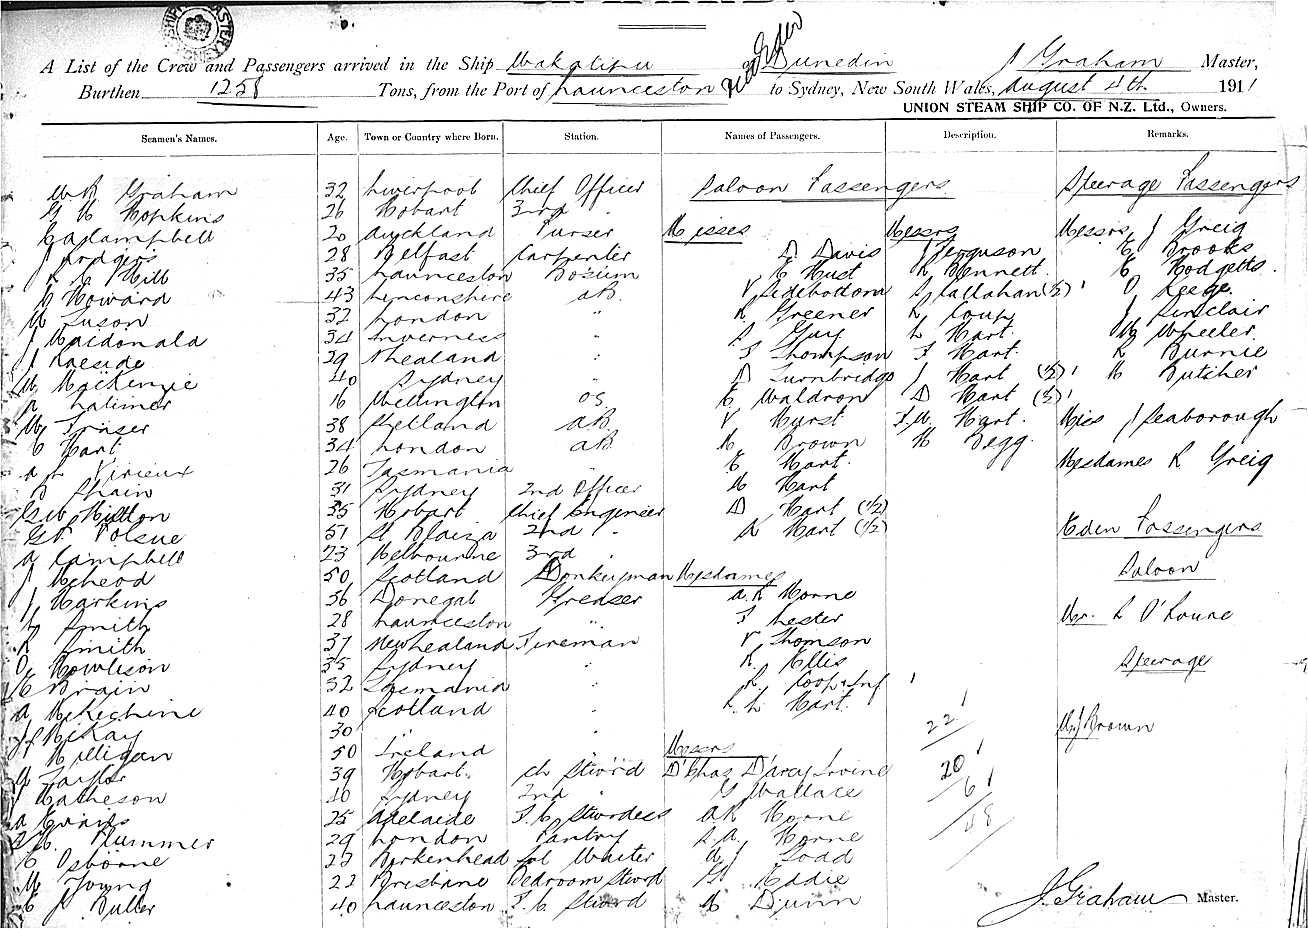 A List of the Crew and Passengers arrived in the Ship Wakatipu Dunedin J Graham Master,
Burthen 1258 Tons, from the Port of Launceston via Eden to Sydney, New South Wales, August 4th 1911
UNION STEAM SHIP CO. OF N.Z. Ltd., Owners.
Seamen's Names. Age. Town or Country where Born. Station. Names of Passengers. Description. Remarks.
Graham 32 Liverpool Chief Officer Saloon Passengers Steerage Passengers
Hopkins 26 Hobart 3rd "
Campbell 20 Auckland Purser Misses Messrs Messrs J Greig
28 Belfast Carpenter D Davis J Ferguson E Brooks
R C Hill 35 Launceston Bosun E Hust R Bennett E Hodgetts
Howard 43 Lincolnshire AB V Sidebottom Callahan (½) O Leege
32 London " R Greener R Coup J Sinclair
J Macdonald 34 Inverness " Guy L Hart W Wheeler
J Raeside 39 " Thompson Hart R Burnie
W MacKenzie 40 Sydney " D Turnbridge J Hart (½) H Butcher
A Latimer 16 Wellington OS E Waldron D Hart (½)
W Fraser 38 Shetland AB V Hurst Hart Miss J Seaborough
C Hart 34 London AB H Brown H Begg
26 Tasmania " E Hart Mesdames R Greig
31 Sydney 2nd Officer H Hart
Hilton 35 Hobart Chief Engineer D Hart (½)
Polsue 51 2nd " Hart (½) Eden Passengers
A Campbell 23 Melbourne 3rd "
J McLeod 50 Scotland Donkeyman Mesdames Saloon
J Harkins 36 Donegal Greaser A.R Horne
Smith 28 Launceston " Lester Mr. R O'Rourke
R Smith 37 New Zealand Fireman V Thomson
Rowlison 35 Sydney " R. Ellis Steerage
Brain 32 Tasmania " Coop & Inf 1
A McKechnie 40 Scotland " L Hart
McKay 30 " " 22 Mr J Brown
Milligan 50 Ireland " Messrs
Taylor 39 Hobart Ch Stw'rd D'Chas D'Arcy Irvine 20
J Matheson 40 Sydney 2nd " G Wallace 6
A Evans 25 Adelaide F.C. Stwrdess A R Horne 48
Plummer 29 London Pantry S.A. Horne
C Osborne 22 Birkenhead Waiter Todd
W Young 22 Brisbane Bedroom Stwrd Eddie
Butler 40 Launceston F.C Stwrd Dunn
J. Graham Master.